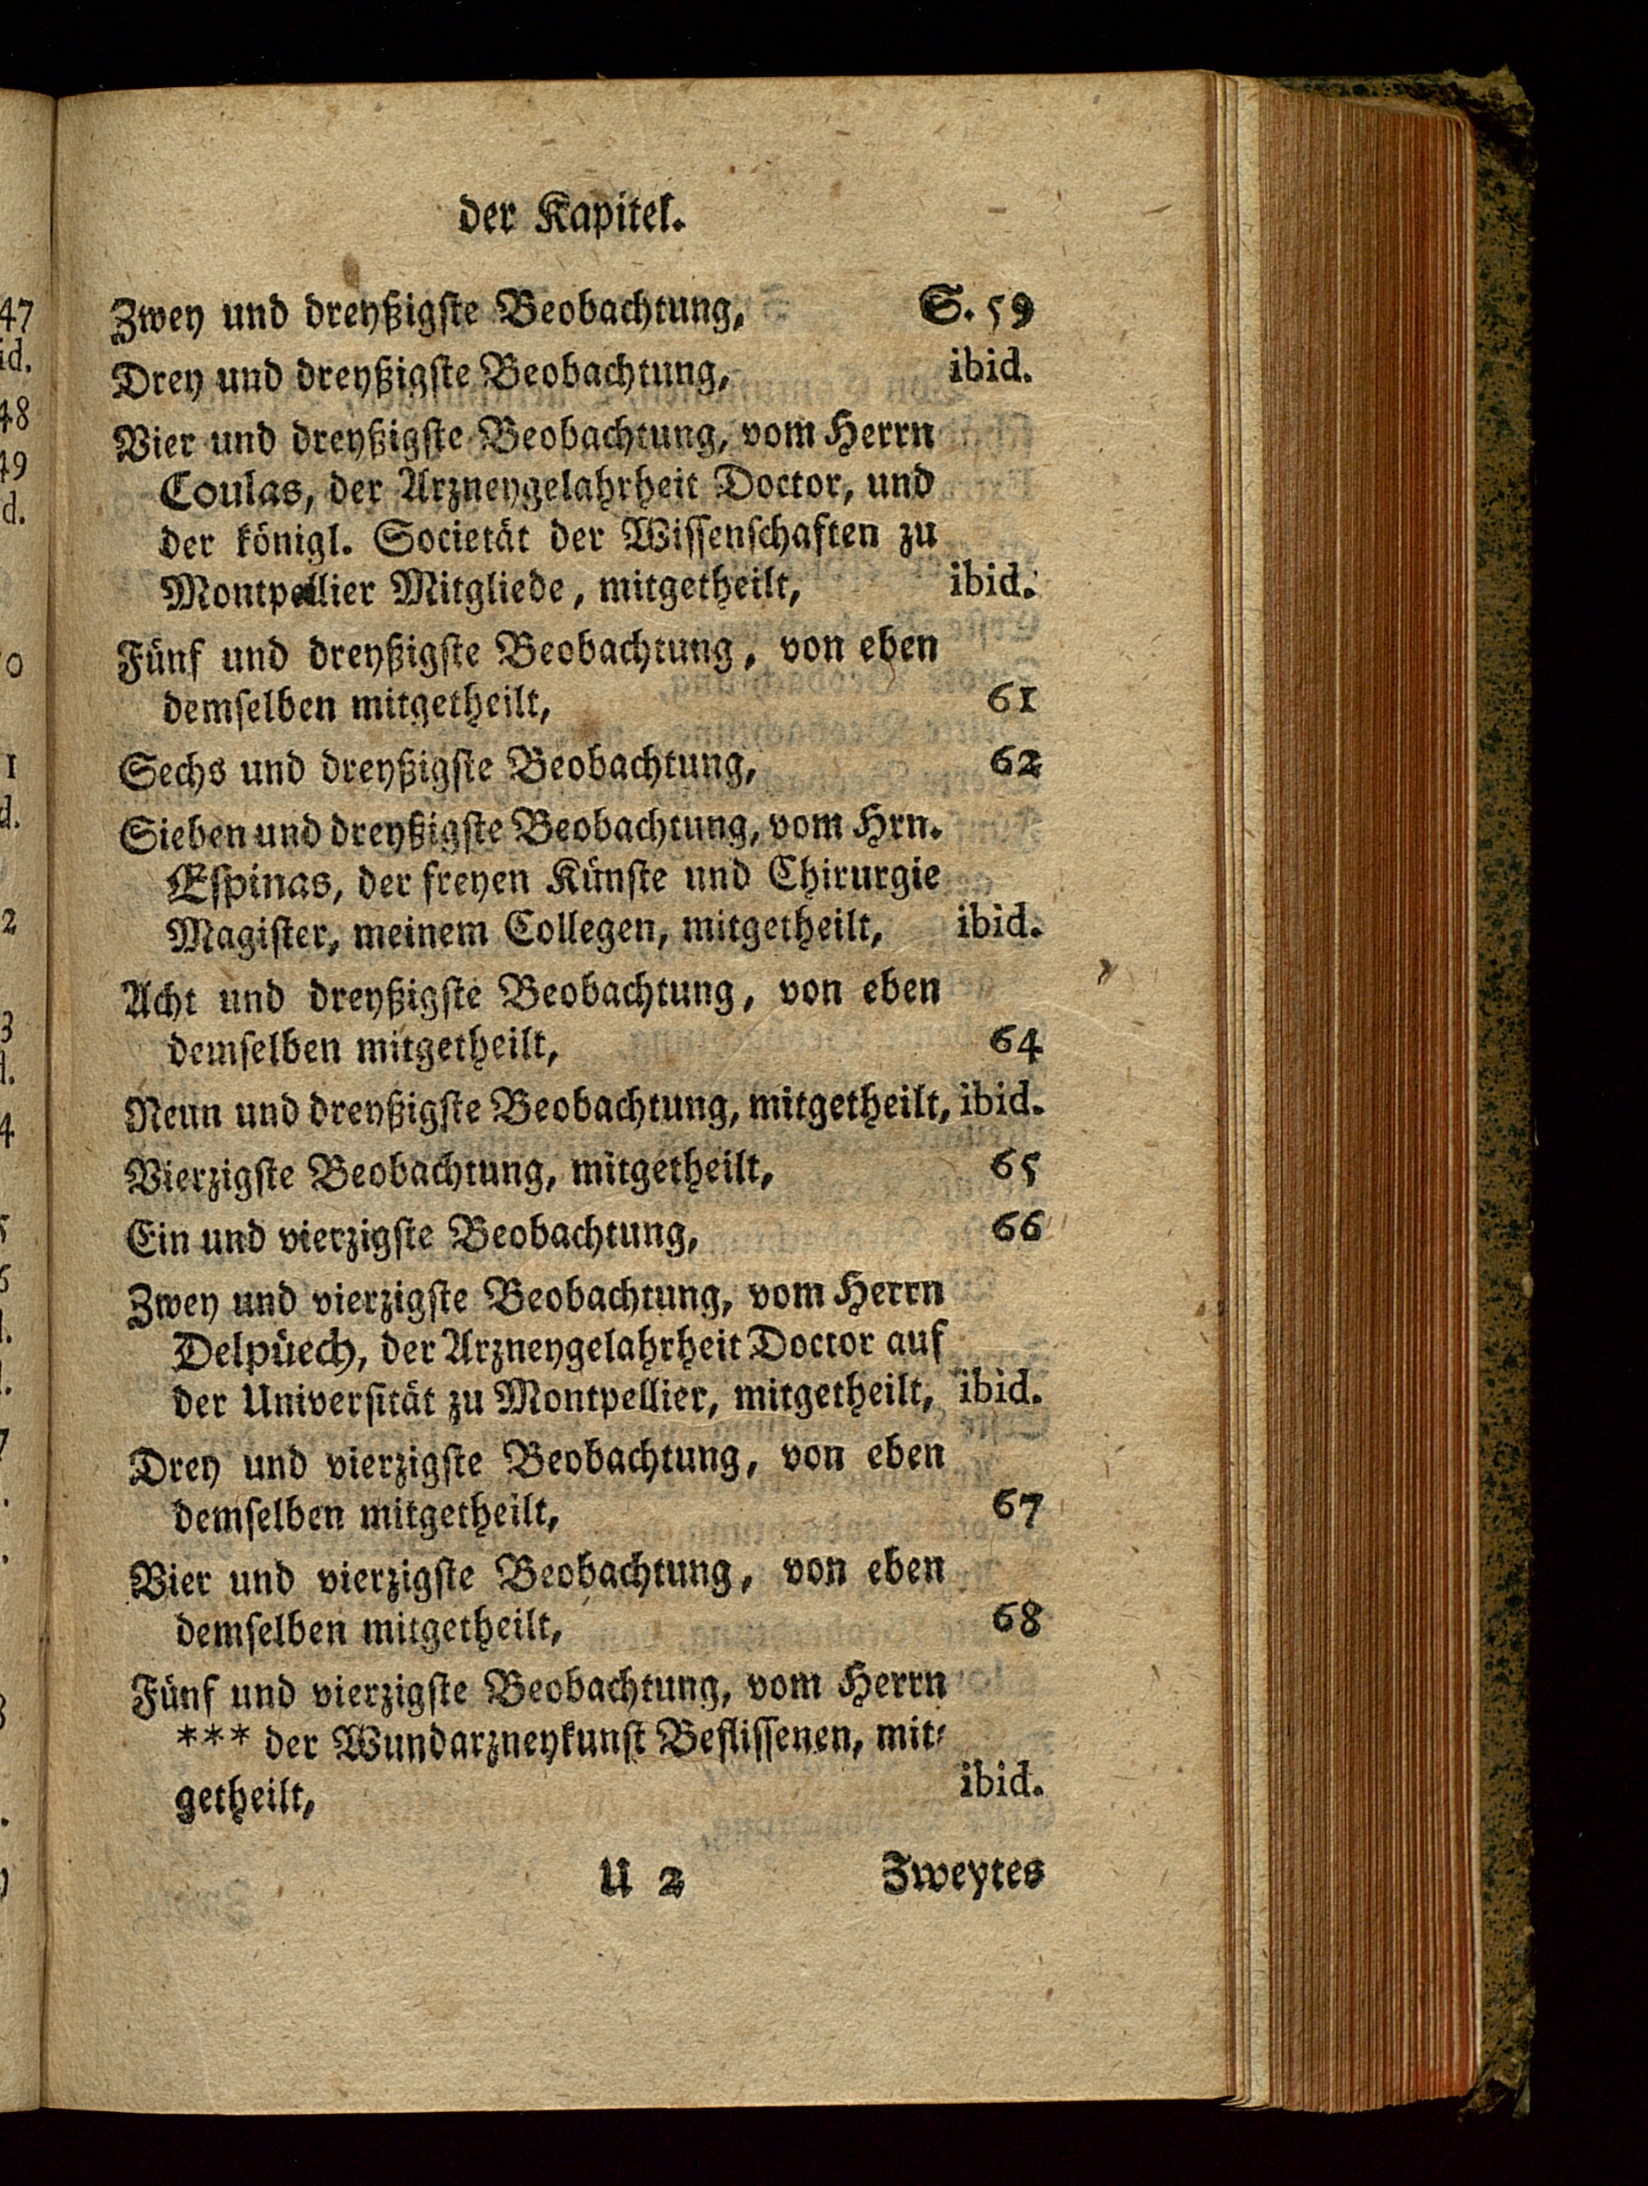 der Kapitel.
Zwey und dreyßigſte Beobachtung, S. 59
Drey und dreyßigſte Beobachtung, ibid.
Vier und dreyßigſte Beobachtung, vom Herrn
Coulas, der Arzneygelahrheit Doctor, und
der königl. Societät der Wiſſenſchaften zu
Montpellier Mitgliede, mitgetheilt, ibid.
Fünf und dreyßigſte Beobachtung, von eben
demſelben mitgetheilt, 61
Sechs und dreyßigſte Beobachtung, 62
Sieben und dreyßigſte Beobachtung, vom Hrn.
Eſpinas, der freyen Künſte und Chirurgie
Magiſter, meinem Collegen, mitgetheilt, ibid.
Acht und dreyßigſte Beobachtung, von eben
demſelben mitgetheilt, 64
Neun und dreyßigſte Beobachtung, mitgetheilt, ibid.
Vierzigſte Beobachtung, mitgetheilt, 65
Ein und vierzigſte Beobachtung, 66
Zwey und vierzigſte Beobachtung, vom Herrn
Delpüech, der Arzneygelahrheit Doctor auf
der Univerſität zu Montpellier, mitgetheilt, ibid.
Drey und vierzigſte Beobachtung, von eben
demſelben mitgetheilt, 67
Vier und vierzigſte Beobachtung, von eben
demſelben mitgetheilt, 68
Fünf und vierzigſte Beobachtung, vom Herrn
*** der Wundarzneykunſt Befliſſenen, mit⸗
getheilt, ibid.
U 2 Zweytes